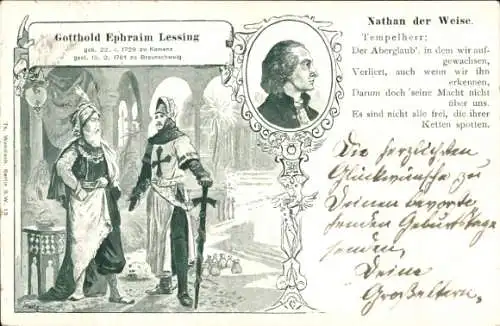 Gotthold Ephraim Lessing
geb. 22. 1. 1729 zu Kamenz
gest. 15. 2. 1781 zu Braunschweig
Nathan der Weise.
Tempelherr:
Der Aberglaub', in dem wir auf-
gewachsen,
Verliert, auch wenn wir ihn
erkennen,
Darum doch seine Macht nicht
über uns.
Es sind nicht alle frei, die ihrer
Ketten spotten.
Die herzlichsten
Glückwünsche zu
Deinem bevorste
henden Geburtstage
senden,
Deine
Großeltern.
Berlin S.W. 13